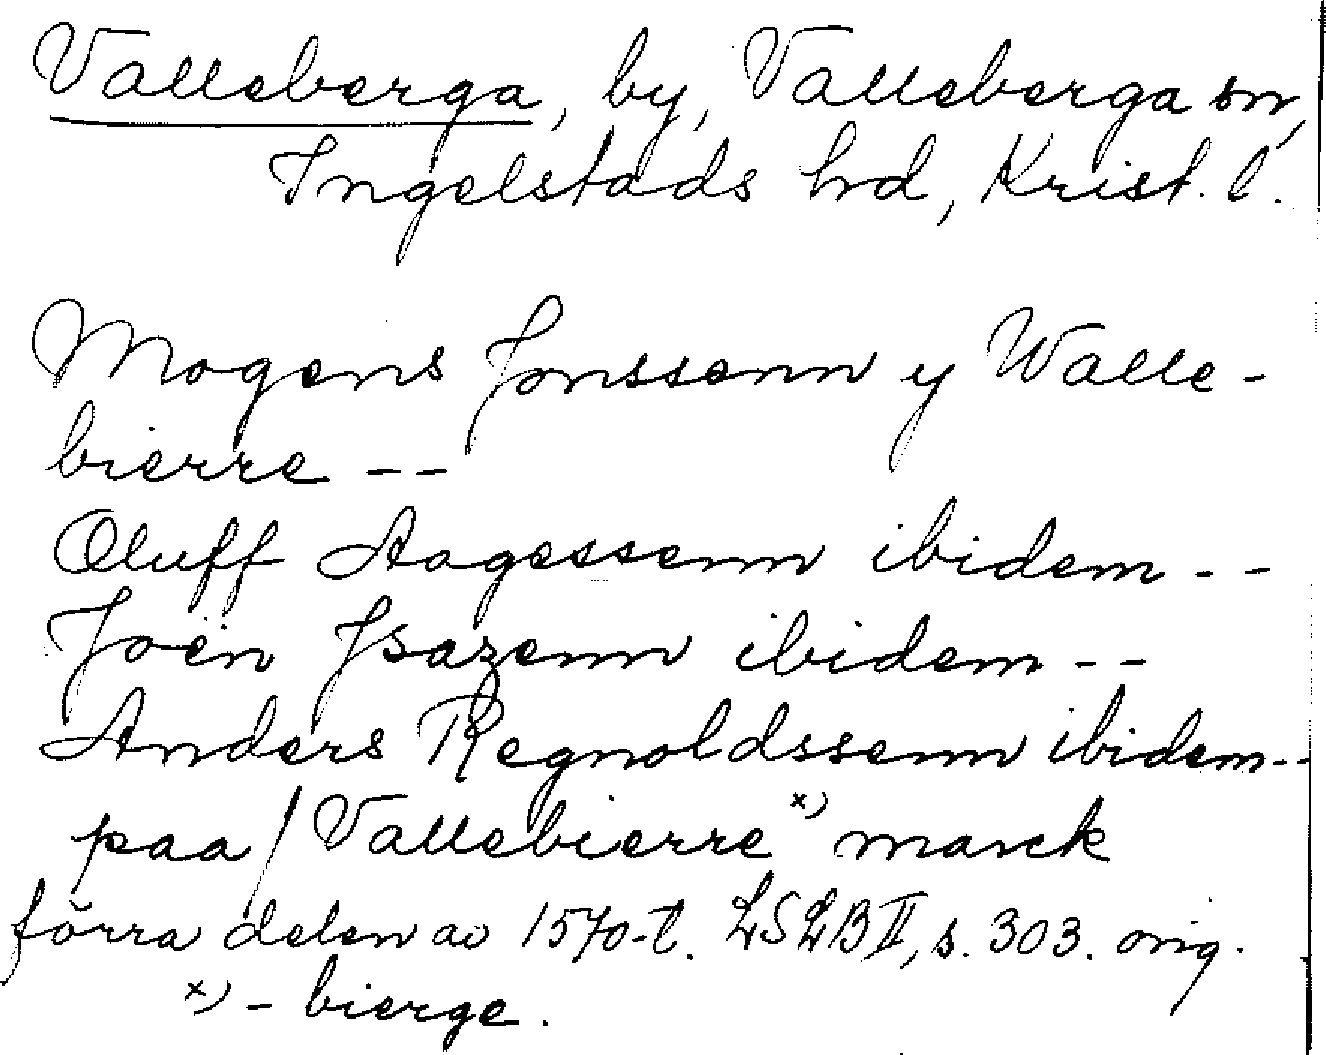 Valleberga, by, Valleberga sn,
Ingelstads hrd, Krist. l.
Mogens Jonssenn y Walle-
bierre --
Oluff Aagessenn ibidem --
Joen Jsazenn ibidem --
Anders Regnoldssenn ibidem--
paa / Vallebierre x) marck
förra delen av 1570-t. LSLB II, s. 303. orig.
x) - bierge.